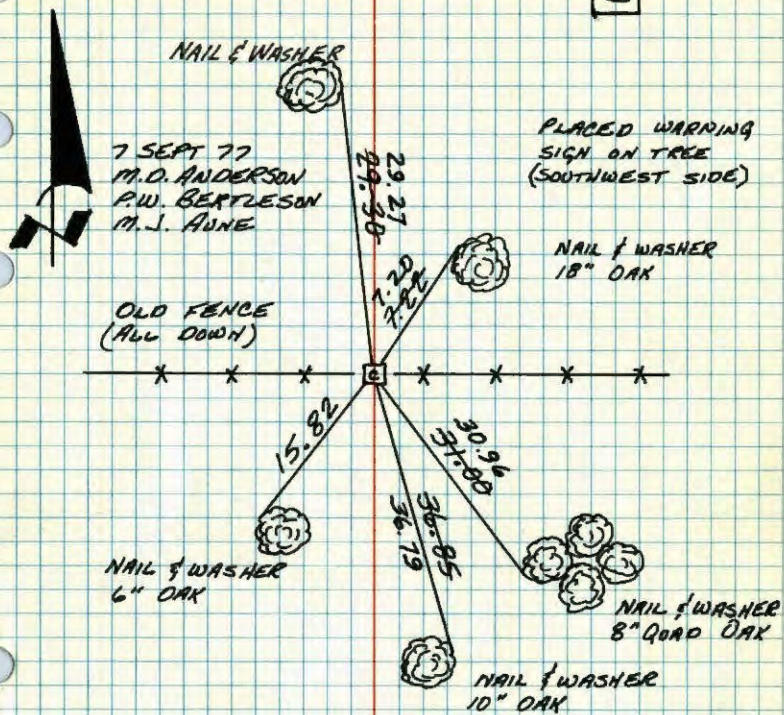 NAIL & WASHER
7 SEPT 77
M.D. ANDERSON
P.W. BERTLESON
M.J. AUNE
PLACED WARNING
SIGN ON TREE
(SOUTHWEST SIDE)
29.27
29.30
NAIL & WASHER
18" OAK
7.20
7.22
OLD FENCE
(ALL DOWN)
C
15.82
30.96
31.00
36.85
36.79
NAIL & WASHER
6" OAK
NAIL & WASHER
8" QUAD OAK
NAIL & WASHER
10" OAK